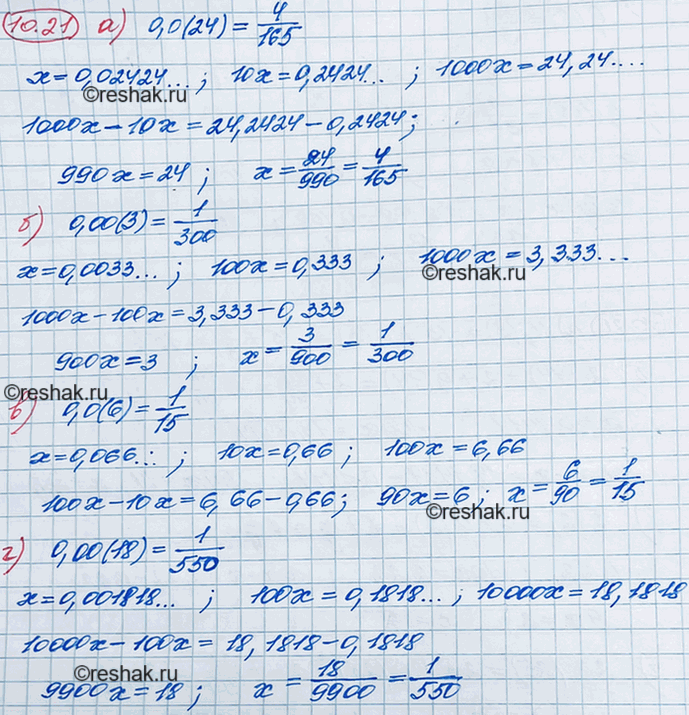 10.21 а) 0,0(24) = 4/165
x=0,02424... ; 10x=0,2424... ; 1000x=24,24....
©reshak.ru
1000x-10x=24,2424-0,2424;
990x=24 ; x=24/990=4/165
б) 0,00(3)=1/300
x=0,0033... ; 100x=0,333 ; 1000x=3,333...
©reshak.ru
1000x-100x=3,333-0,333
900x=3 ; x=3/900=1/300
©reshak.ru
в) 0,0(6)=1/15
x=0,066... ; 10x=0,66 ; 100x=6,66
100x-10x=6,66-0,66; 90x=6 ; x=6/90=1/15
©reshak.ru
г) 0,00(18)=1/550
x=0,001818... ; 100x=0,1818... ; 10000x=18,1818
10000x-100x=18,1818-0,1818
©reshak.ru
9900x=18 ; x=18/9900=1/550